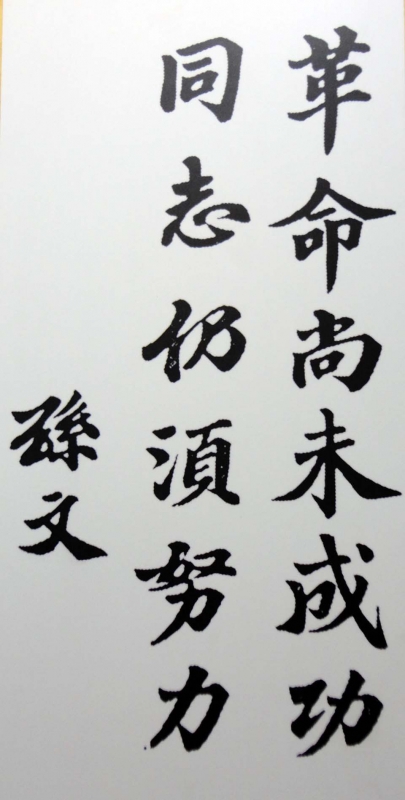 革命尚未成功
同志仍湏努力
孫文